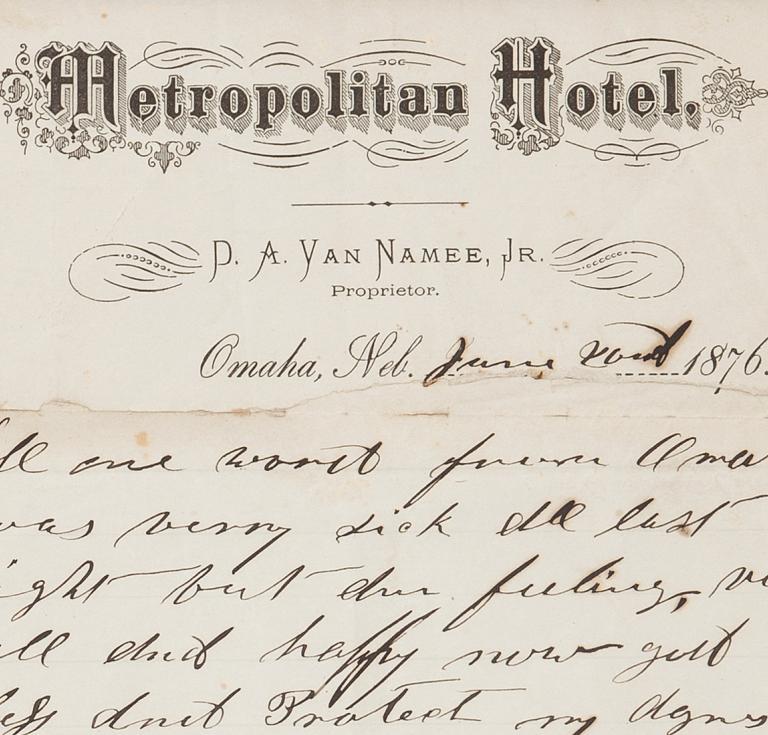 Metropolitan Hotel.
D. A. Van Namee, Jr.
Proprietor.
Omaha, Neb. June 1876.
ll one wordt from Oma
was verry sick all last
ight but am feeling, v
ll and happy now gott
less and Protect my